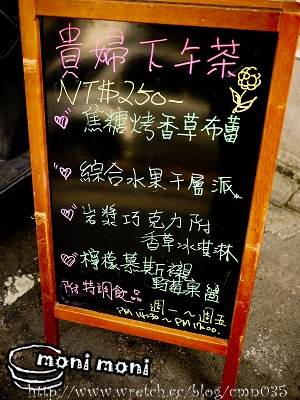 貴婦下午茶
NT$250-
焦糖烤香草布蕾
綜合水果千層派
岩漿巧克力附
香草冰淇淋
檸檬慕斯襯
野莓果醬
附特調飲品
週一~週五
PM 14:30 ~ PM 17:00.
moni moni
http://www.wretch.cc/blog/cmn035